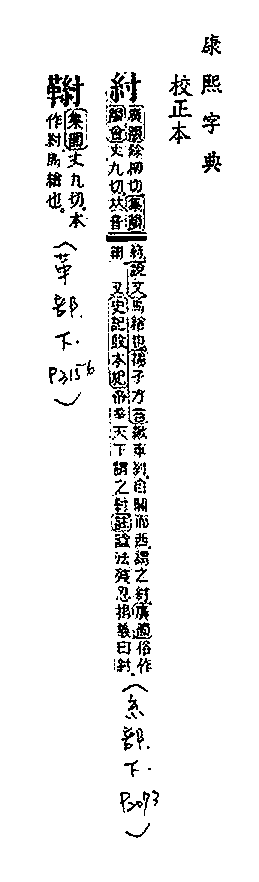 康熙字典
校正本
紂
廣韻除柳切集韻
韻會丈九切𠀤音
說文馬緧也揚子方言車紂自關而西謂之紂廣韻俗作
又史記殷本紀帝辛天下謂之紂註諡法殘忍捐義曰紂
(糸部.下.P2073)
集韻丈九切.本
作紂.馬緧也。
(革部.下.P3156)